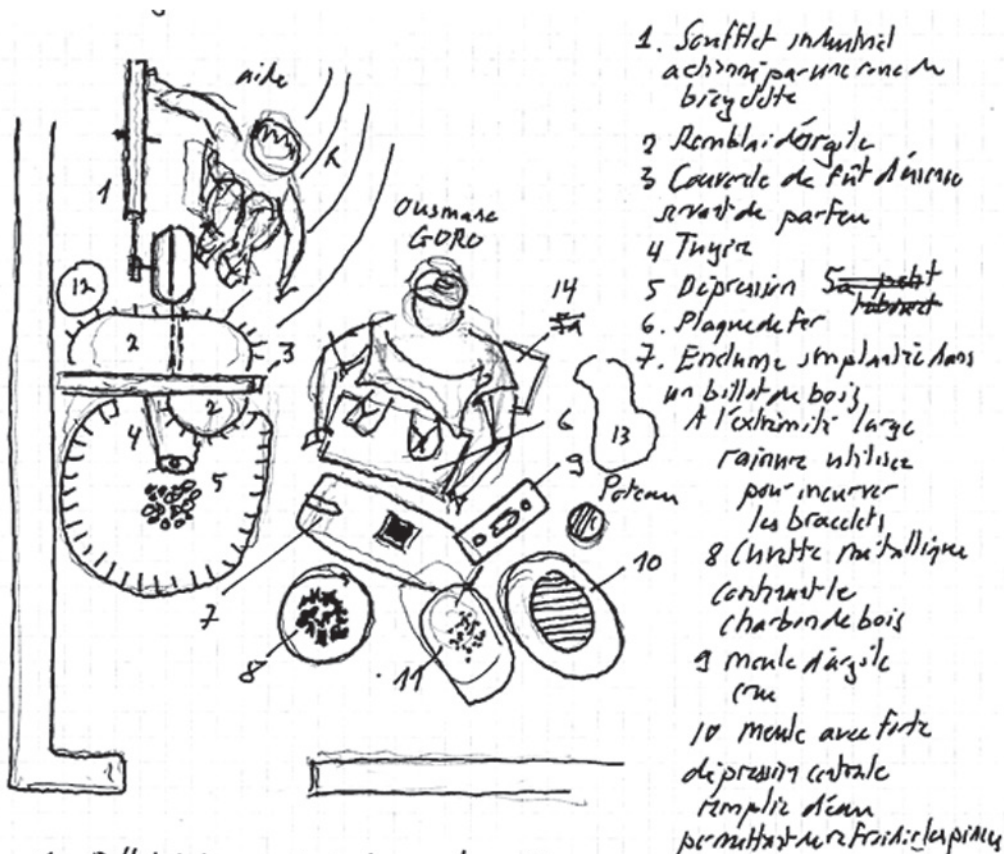 aide
Ousmane
GORO
1
2
3
4
2
5
6
7
8
9
10
11
12
13
14
5a
Poteau
1. Soufflet industriel
actionné par une roue de
bicyclette
2 Remblai d'argile
3 Couvercle de fût d'essence
servant de parfeu
4 Tuyère
5 Dépression 5a petit
tabouret
6. Plaque de fer
7. Enclume implantée dans
un billot de bois
A l'extrémité large
rainure utilisée
pour incurver
les bracelets
8 Cuvette métallique
contenant le
charbon de bois
9 moule d'argile
crue
10 meule avec forte
dépression centrale
remplie d'eau
permettant de refroidir les pièces